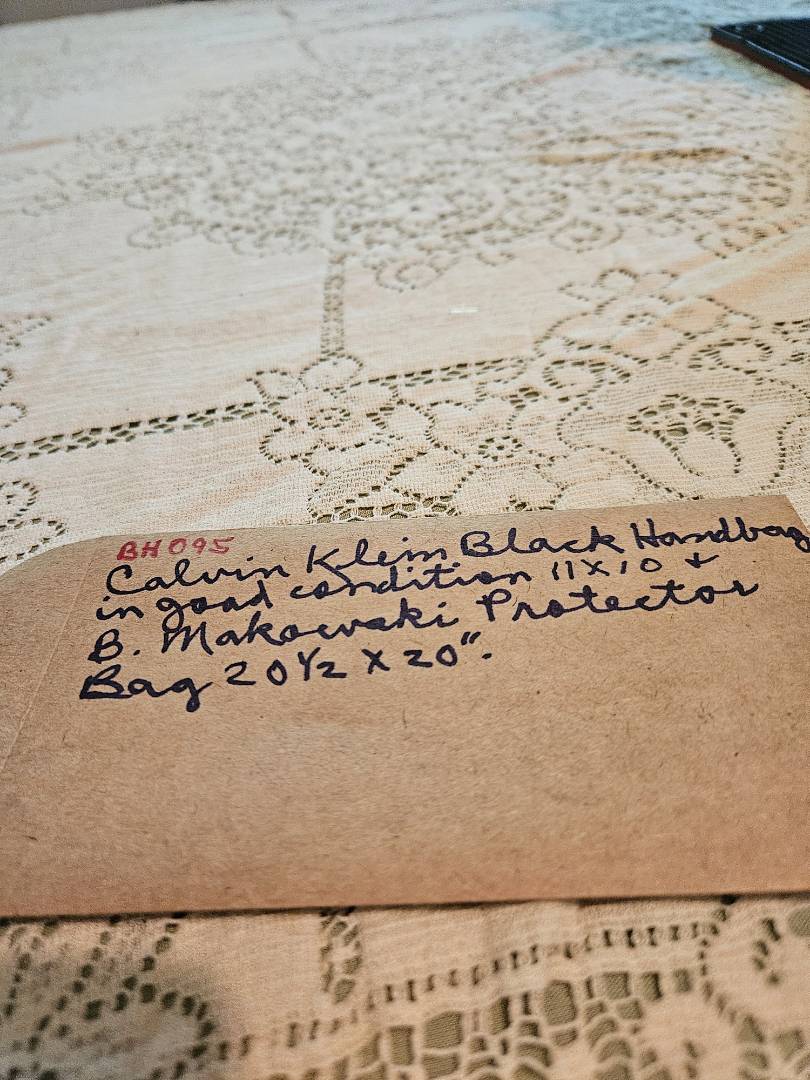 BH095
Calvin Klein Black Handbag
in good condition 11 X 10 +
B. Makowski Protector
Bag 20 1/2 X 20".